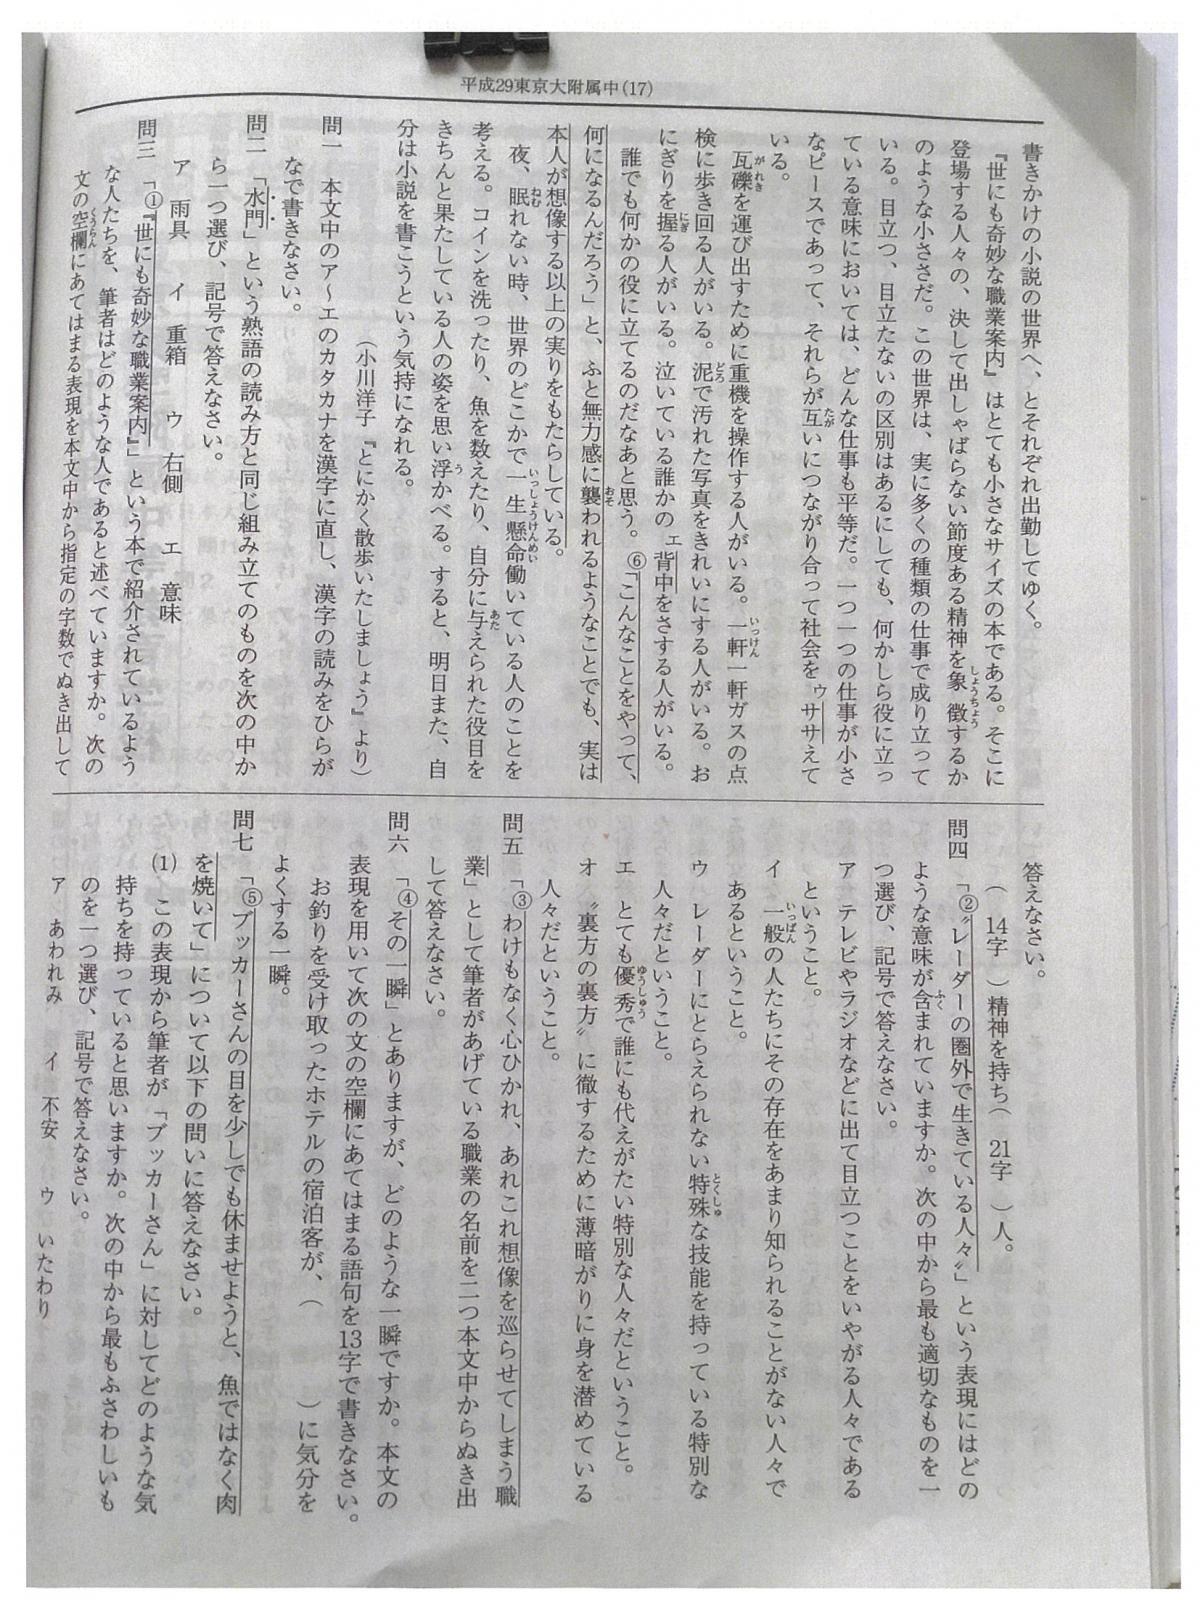 平成29東京大附属中(17)
書きかけの小説の世界へ、とそれぞれ出勤してゆく。
『世にも奇妙な職業案内』はとても小さなサイズの本である。そこに
登場する人々の、決して出しゃばらない節度ある精神を象徴するか
のような小ささだ。この世界は、実に多くの種類の仕事で成り立って
いる。目立つ、目立たないの区別はあるにしても、何かしら役に立っ
ている意味においては、どんな仕事も平等だ。一つ一つの仕事が小さ
なピースであって、それらが互いにつながり合って社会をゥササえて
いる。
瓦礫を運び出すために重機を操作する人がいる。一軒一軒ガスの点
検に歩き回る人がいる。泥で汚れた写真をきれいにする人がいる。お
にぎりを握る人がいる。泣いている誰かのエ背中をさする人がいる。
誰でも何かの役に立てるのだなあと思う。⑥「こんなことをやって、
何になるんだろう」と、ふと無力感に襲われるようなことでも、実は
本人が想像する以上の実りをもたらしている。
夜、眠れない時、世界のどこかで一生懸命働いている人のことを
考える。コインを洗ったり、魚を数えたり、自分に与えられた役目を
きちんと果たしている人の姿を思い浮かべる。すると、明日また、自
分は小説を書こうという気持になれる。
（小川洋子『とにかく散歩いたしましょう』より）
問一 本文中のア～エのカタカナを漢字に直し、漢字の読みをひらが
なで書きなさい。
問二 「水門」という熟語の読み方と同じ組み立てのものを次の中か
ら一つ選び、記号で答えなさい。
ア 雨具 イ 重箱 ウ 右側 エ 意味
問三 「①『世にも奇妙な職業案内』」という本で紹介されているよう
な人たちを、筆者はどのような人であると述べていますか。次の
文の空欄にあてはまる表現を本文中から指定の字数でぬき出して
答えなさい。
（ 14字 ）精神を持ち（ 21字 ）人。
問四 「②〝レーダーの圏外で生きている人々〟」という表現にはどの
ような意味が含まれていますか。次の中から最も適切なものを一
つ選び、記号で答えなさい。
ア テレビやラジオなどに出て目立つことをいやがる人々である
ということ。
イ 一般の人たちにその存在をあまり知られることがない人々で
あるということ。
ウ レーダーにとらえられない特殊な技能を持っている特別な
人々だということ。
エ とても優秀で誰にも代えがたい特別な人々だということ。
オ 〝裏方の裏方〟に徹するために薄暗がりに身を潜めている
人々だということ。
問五 「③わけもなく心ひかれ、あれこれ想像を巡らせてしまう職
業」として筆者があげている職業の名前を二つ本文中からぬき出
して答えなさい。
問六 「④その一瞬」とありますが、どのような一瞬ですか。本文の
表現を用いて次の文の空欄にあてはまる語句を13字で書きなさい。
お釣りを受け取ったホテルの宿泊客が、（ ）に気分を
よくする一瞬。
問七 「⑤ブッカーさんの目を少しでも休ませようと、魚ではなく肉
を焼いて」について以下の問いに答えなさい。
(1) この表現から筆者が「ブッカーさん」に対してどのような気
持ちを持っていると思いますか。次の中から最もふさわしいも
のを一つ選び、記号で答えなさい。
ア あわれみ イ 不安 ウ いたわり